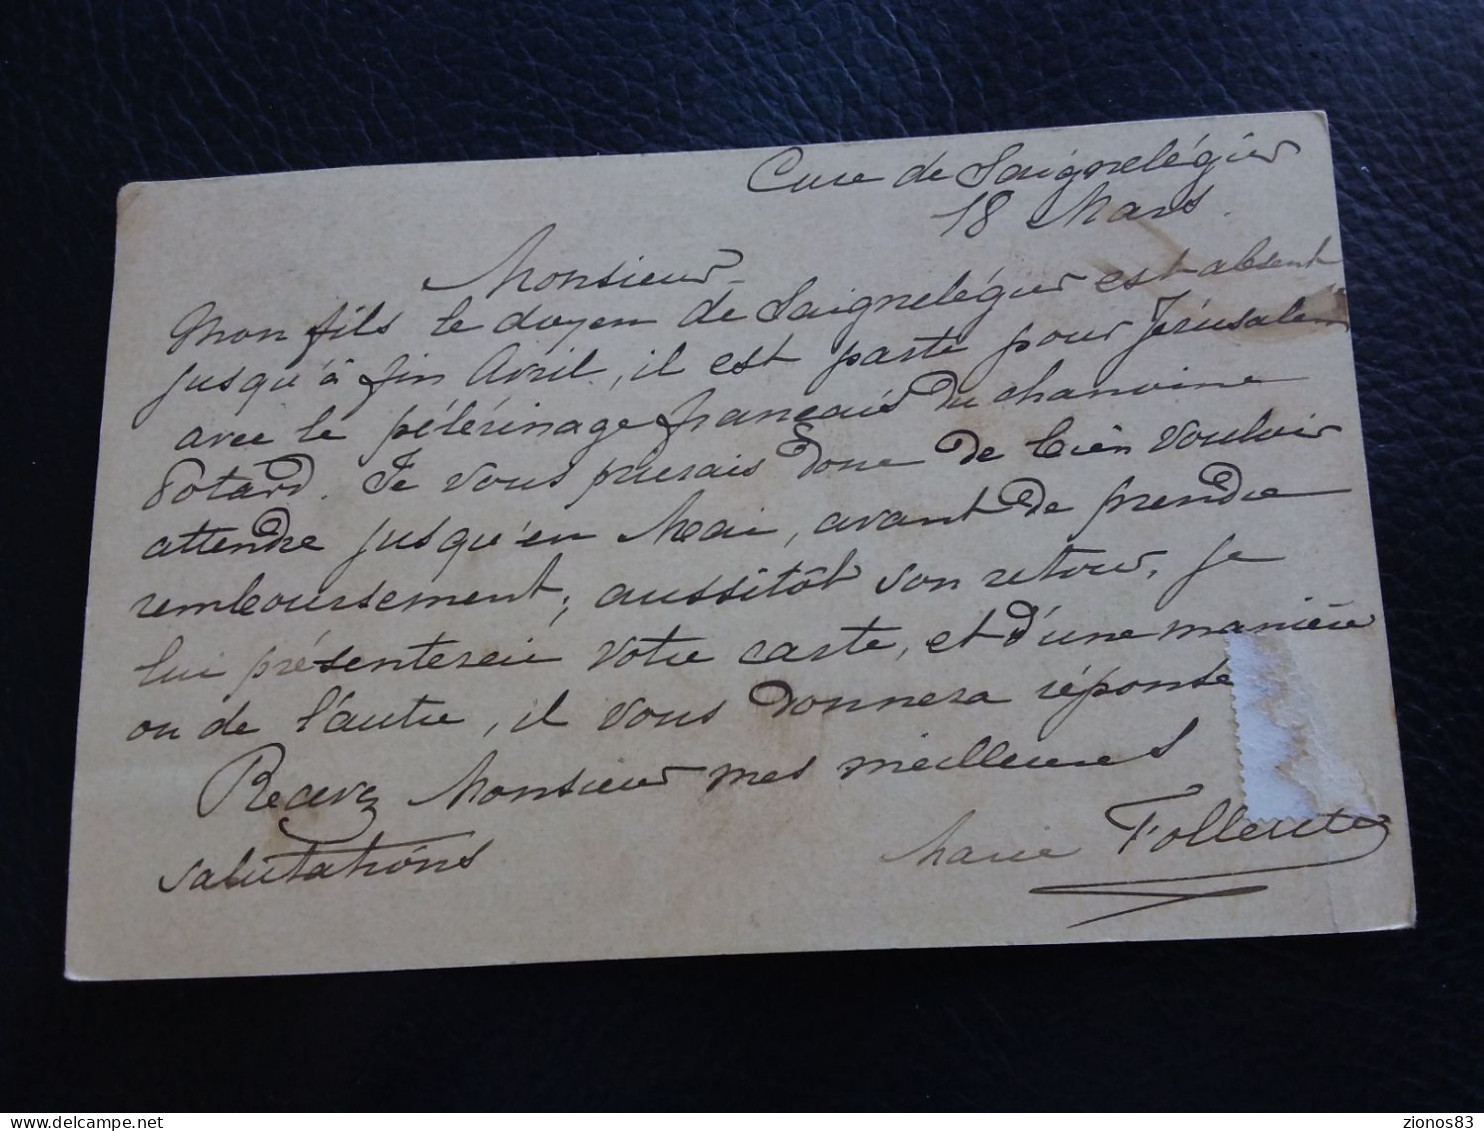 Cure de Saignelégier
18 Mars.
Monsieur
Mon fils le doyen de Saignelégier est absent
jusqu'à fin Avril, il est parti pour Jérusalem
avec le pélérinage français du chanoine
Potard. Je vous prierais donc de bien vouloir
attendre jusqu'en Mai, avant de prendre
remboursement; aussitôt son retour, je
lui présenterai votre carte, et d'une manière
ou de l'autre, il vous donnera réponse
Recevez Monsieur mes meilleures
salutations
Marie Folletête
delcampe.net
zionos83